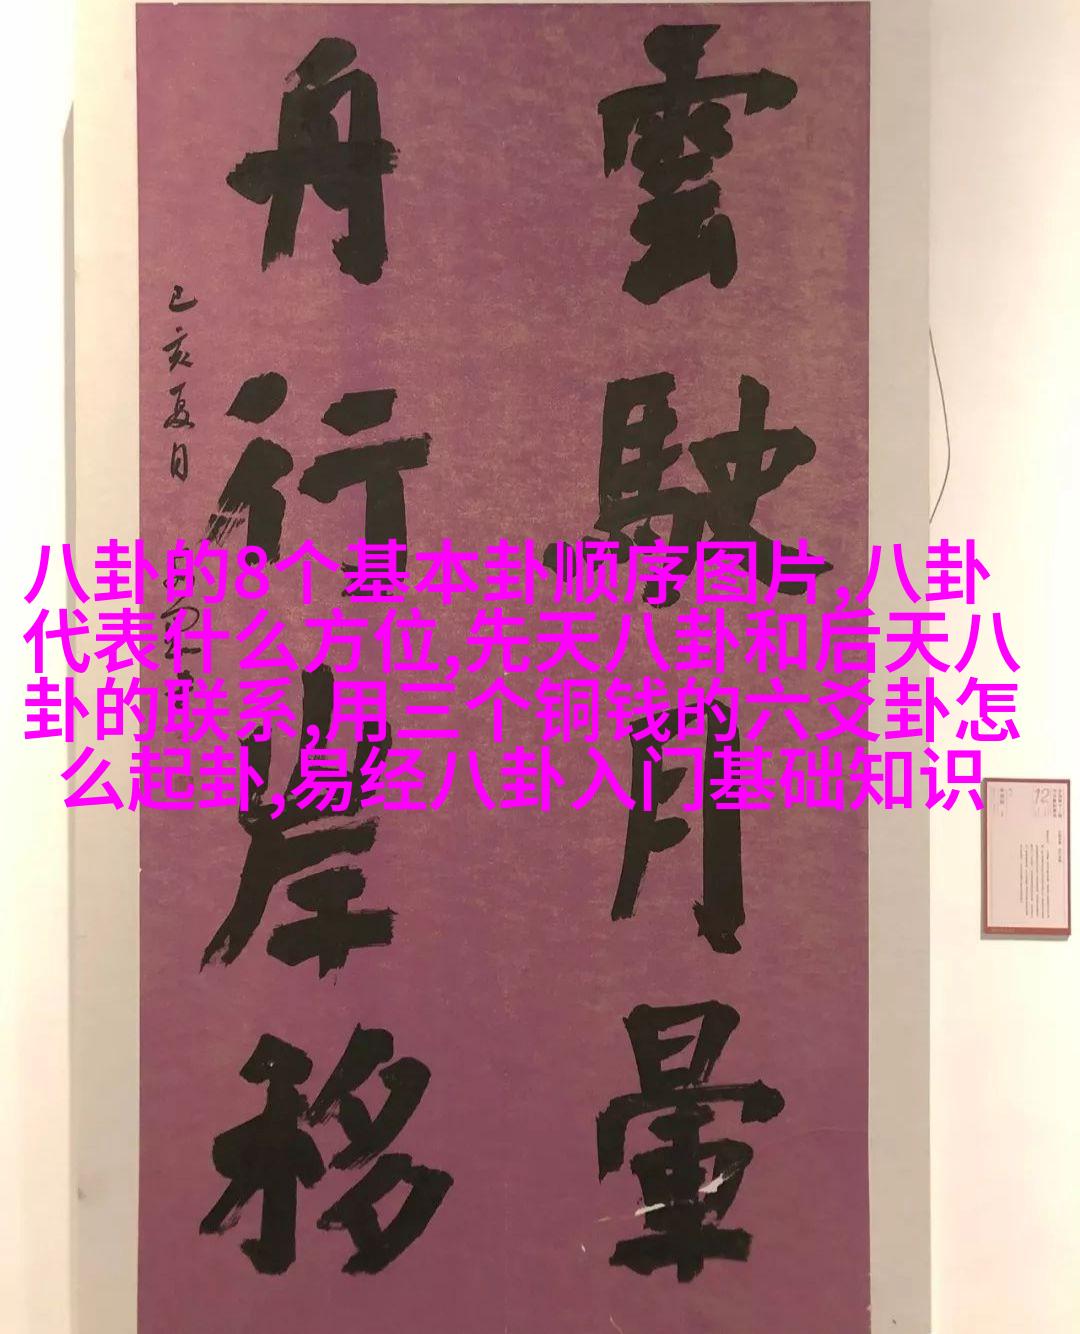 雲駛月暈
舟行岸移
己亥夏月
八卦的8个基本卦顺序图片,八卦
代表什么方位,先天八卦和后天八
卦的联系,用三个铜钱的六爻卦怎
么起卦,易经八卦入门基础知识
12